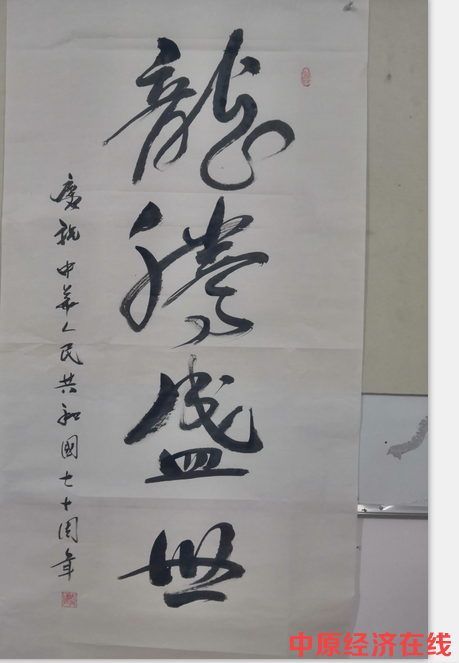 龍騰盛世
慶祝中華人民共和國七十周年
中原经济在线